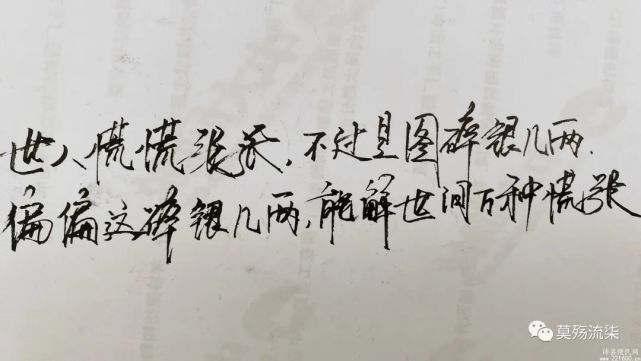 世人慌慌张张,不过是图碎银几两.
偏偏这碎银几两,能解世间万种慌张
莫殇流柒
沛县便民网
www.221600.cn